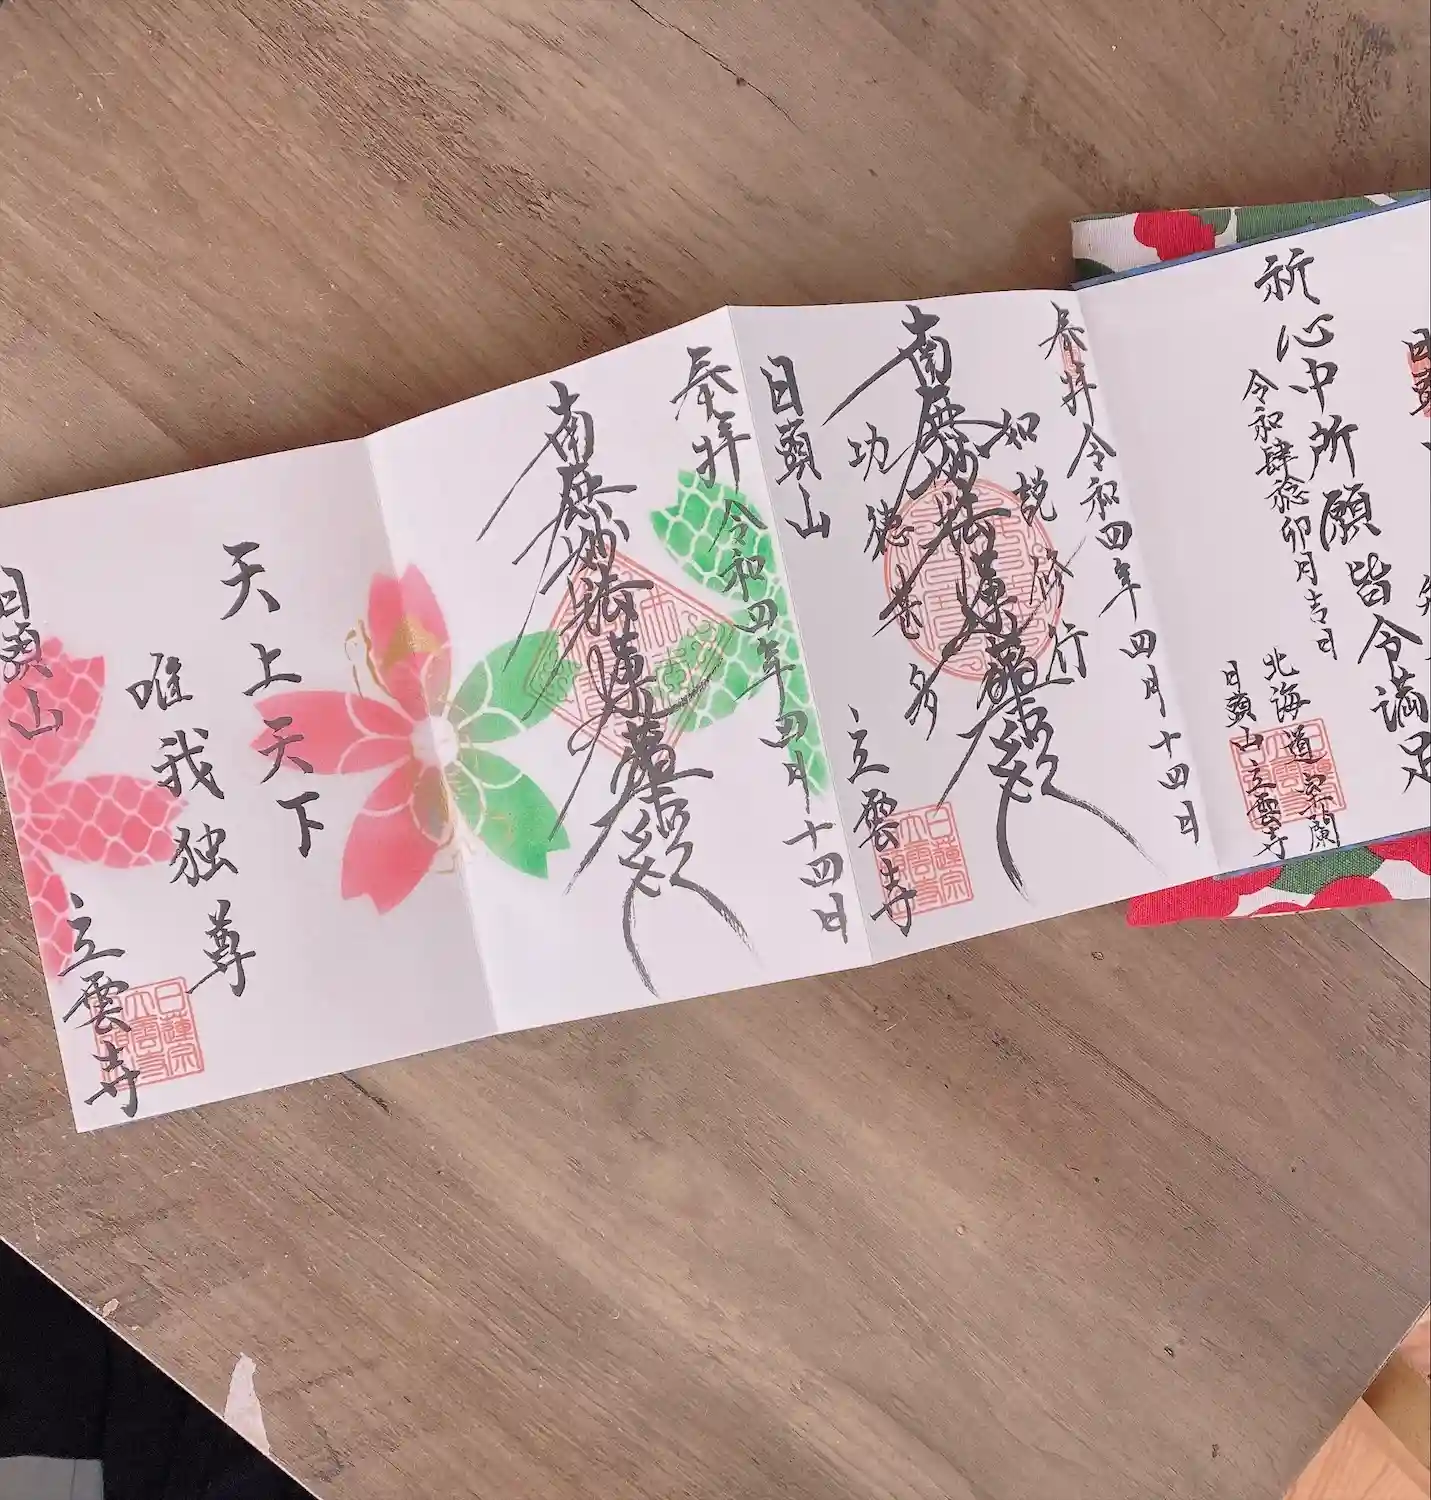 祈
心中所願皆令満足
令和肆稔卯月吉日
北海道室蘭
日蘋山立雲寺
奉拝 令和四年四月十四日
如説修行
南無妙法蓮華経
功徳甚多
日蘋山 立雲寺
奉拝 令和四年四月十四日
南無妙法蓮華経
天上天下
唯我独尊
日蘋山 立雲寺
日蓮宗
立雲寺